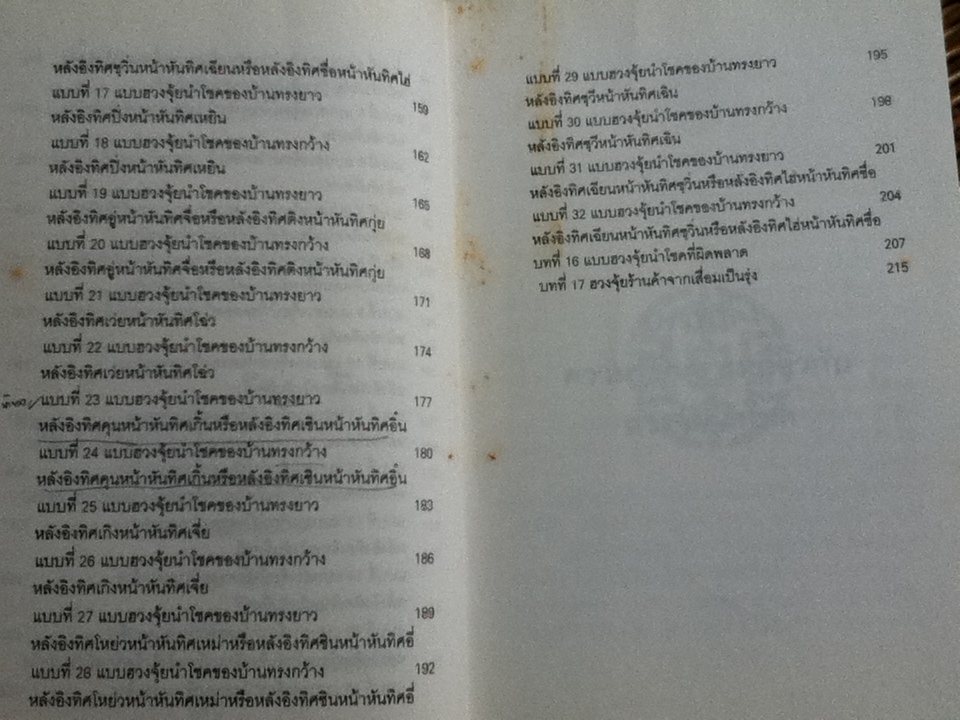 หลังอิงทิศซุวิ่นหน้าหันทิศเฉียนหรือหลังอิงทิศซื่อหน้าหันทิศไฮ่
แบบที่ 17 แบบฮวงจุ้ยนำโชคของบ้านทรงยาว 159
หลังอิงทิศปิ่งหน้าหันทิศเหยิน
แบบที่ 18 แบบฮวงจุ้ยนำโชคของบ้านทรงกว้าง 162
หลังอิงทิศปิ่งหน้าหันทิศเหยิน
แบบที่ 19 แบบฮวงจุ้ยนำโชคของบ้านทรงยาว 165
หลังอิงทิศอู่หน้าหันทิศจื่อหรือหลังอิงทิศติงหน้าหันทิศกุ่ย
แบบที่ 20 แบบฮวงจุ้ยนำโชคของบ้านทรงกว้าง 168
หลังอิงทิศอู่หน้าหันทิศจื่อหรือหลังอิงทิศติงหน้าหันทิศกุ่ย
แบบที่ 21 แบบฮวงจุ้ยนำโชคของบ้านทรงยาว 171
หลังอิงทิศเว่ยหน้าหันทิศโฉ่ว
แบบที่ 22 แบบฮวงจุ้ยนำโชคของบ้านทรงกว้าง 174
หลังอิงทิศเว่ยหน้าหันทิศโฉ่ว
แบบที่ 23 แบบฮวงจุ้ยนำโชคของบ้านทรงยาว 177
หลังอิงทิศคุนหน้าหันทิศเกิ้นหรือหลังอิงทิศเซินหน้าหันทิศอิ๋น
แบบที่ 24 แบบฮวงจุ้ยนำโชคของบ้านทรงกว้าง 180
หลังอิงทิศคุนหน้าหันทิศเกิ้นหรือหลังอิงทิศเซินหน้าหันทิศอิ๋น
แบบที่ 25 แบบฮวงจุ้ยนำโชคของบ้านทรงยาว 183
หลังอิงทิศเกิงหน้าหันทิศเจี่ย
แบบที่ 26 แบบฮวงจุ้ยนำโชคของบ้านทรงกว้าง 186
หลังอิงทิศเกิงหน้าหันทิศเจี่ย
แบบที่ 27 แบบฮวงจุ้ยนำโชคของบ้านทรงยาว 189
หลังอิงทิศโหย่วหน้าหันทิศเหม่าหรือหลังอิงทิศซินหน้าหันทิศอี่
แบบที่ 28 แบบฮวงจุ้ยนำโชคของบ้านทรงกว้าง 192
หลังอิงทิศโหย่วหน้าหันทิศเหม่าหรือหลังอิงทิศซินหน้าหันทิศอี่
แบบที่ 29 แบบฮวงจุ้ยนำโชคของบ้านทรงยาว 195
หลังอิงทิศซุวีหน้าหันทิศเฉิน
แบบที่ 30 แบบฮวงจุ้ยนำโชคของบ้านทรงกว้าง 198
หลังอิงทิศซุวีหน้าหันทิศเฉิน
แบบที่ 31 แบบฮวงจุ้ยนำโชคของบ้านทรงยาว 201
หลังอิงทิศเฉียนหน้าหันทิศซุวิ่นหรือหลังอิงทิศไฮ่หน้าหันทิศซื่อ
แบบที่ 32 แบบฮวงจุ้ยนำโชคของบ้านทรงกว้าง 204
หลังอิงทิศเฉียนหน้าหันทิศซุวิ่นหรือหลังอิงทิศไฮ่หน้าหันทิศซื่อ
บทที่ 16 แบบฮวงจุ้ยนำโชคที่ผิดพลาด 207
บทที่ 17 ฮวงจุ้ยร้านค้าจากเสื่อมเป็นรุ่ง 215